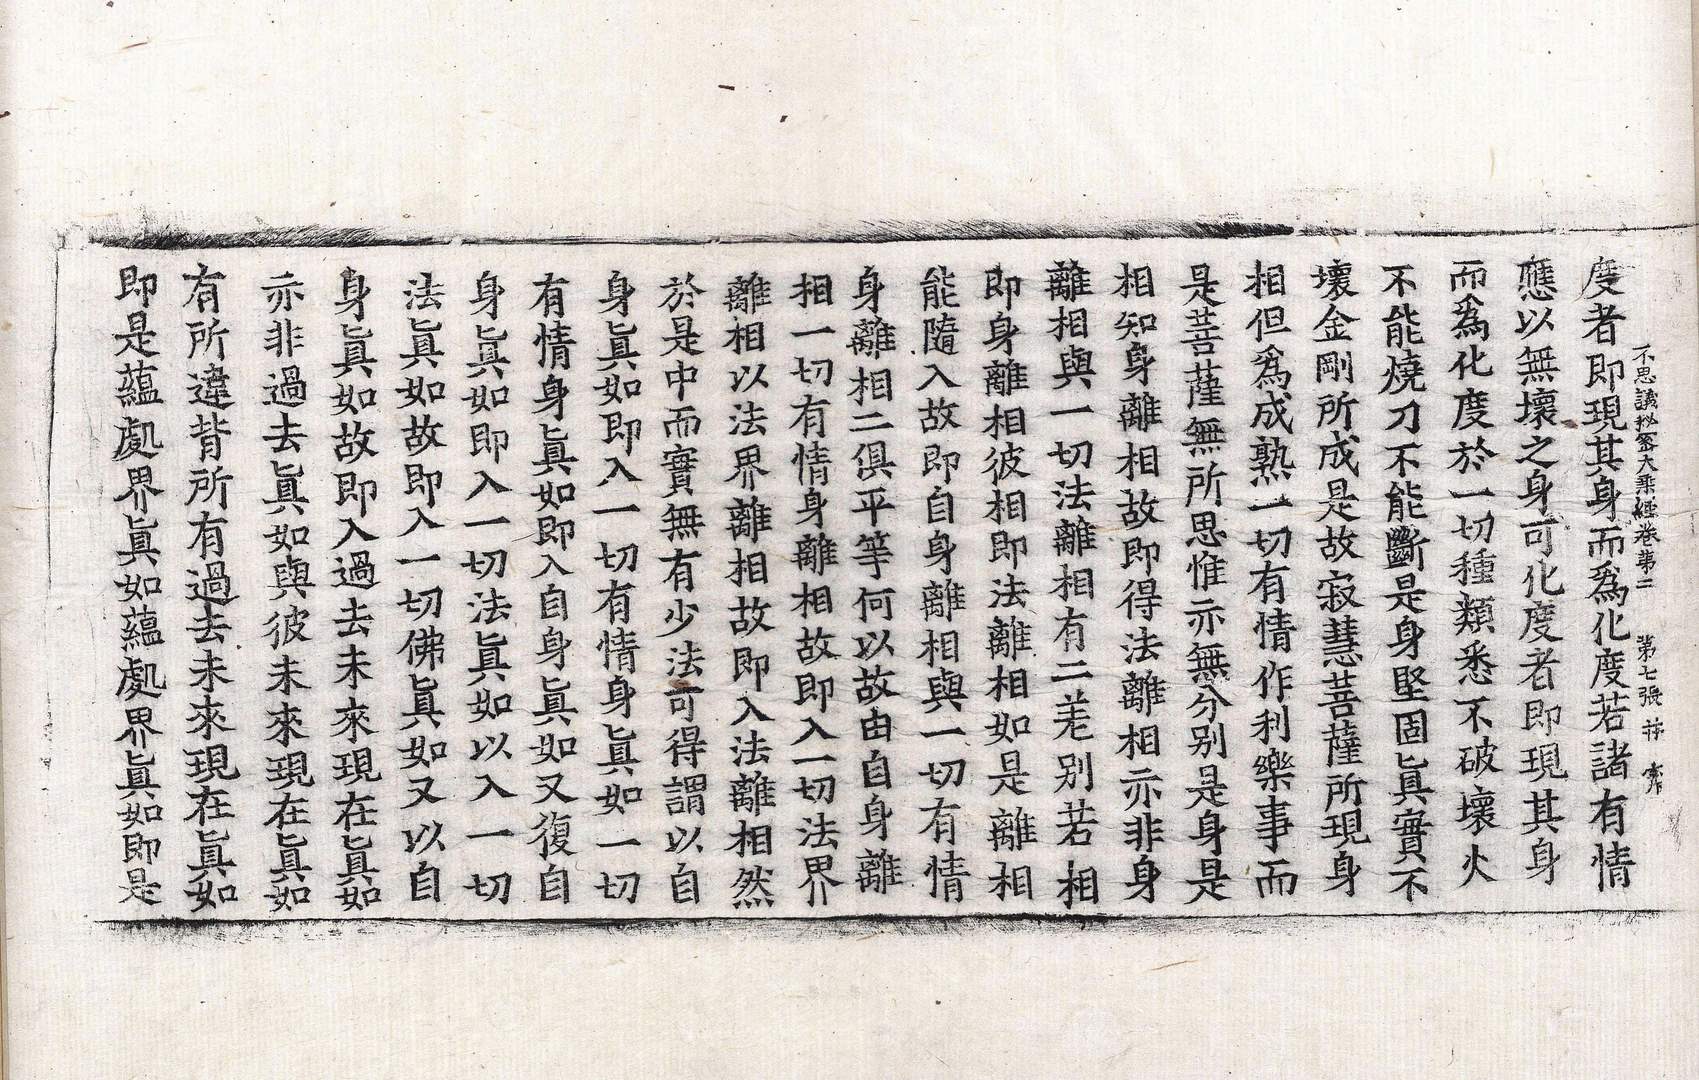 不思議祕密大乘經卷第二 第七張
度者即現其身而爲化度若諸有情
應以無壞之身可化度者即現其身
而爲化度於一切種類悉不破壞火
不能燒刀不能斷是身堅固眞實不
壞金剛所成是故寂慧菩薩所現身
相但爲成熟一切有情作利樂事而
是菩薩無所思惟亦無分别是身是
相知身離相故即得法離相亦非身
離相與一切法離相有二差别若相
即身離相彼相即法離相如是離相
能隨入故即自身離相與一切有情
身離相二俱平等何以故由自身離
相一切有情身離相故即入一切法界
離相以法界離相故即入法離相然
於是中而實無有少法可得謂以自
身眞如即入一切有情身眞如一切
有情身眞如即入自身眞如又復自
身眞如即入一切法眞如以入一切
法眞如故即入一切佛眞如又以自
身眞如故即入過去未來現在眞如
亦非過去眞如與彼未來現在眞如
有所違背所有過去未來現在眞如
即是蘊處界眞如蘊處界眞如即是